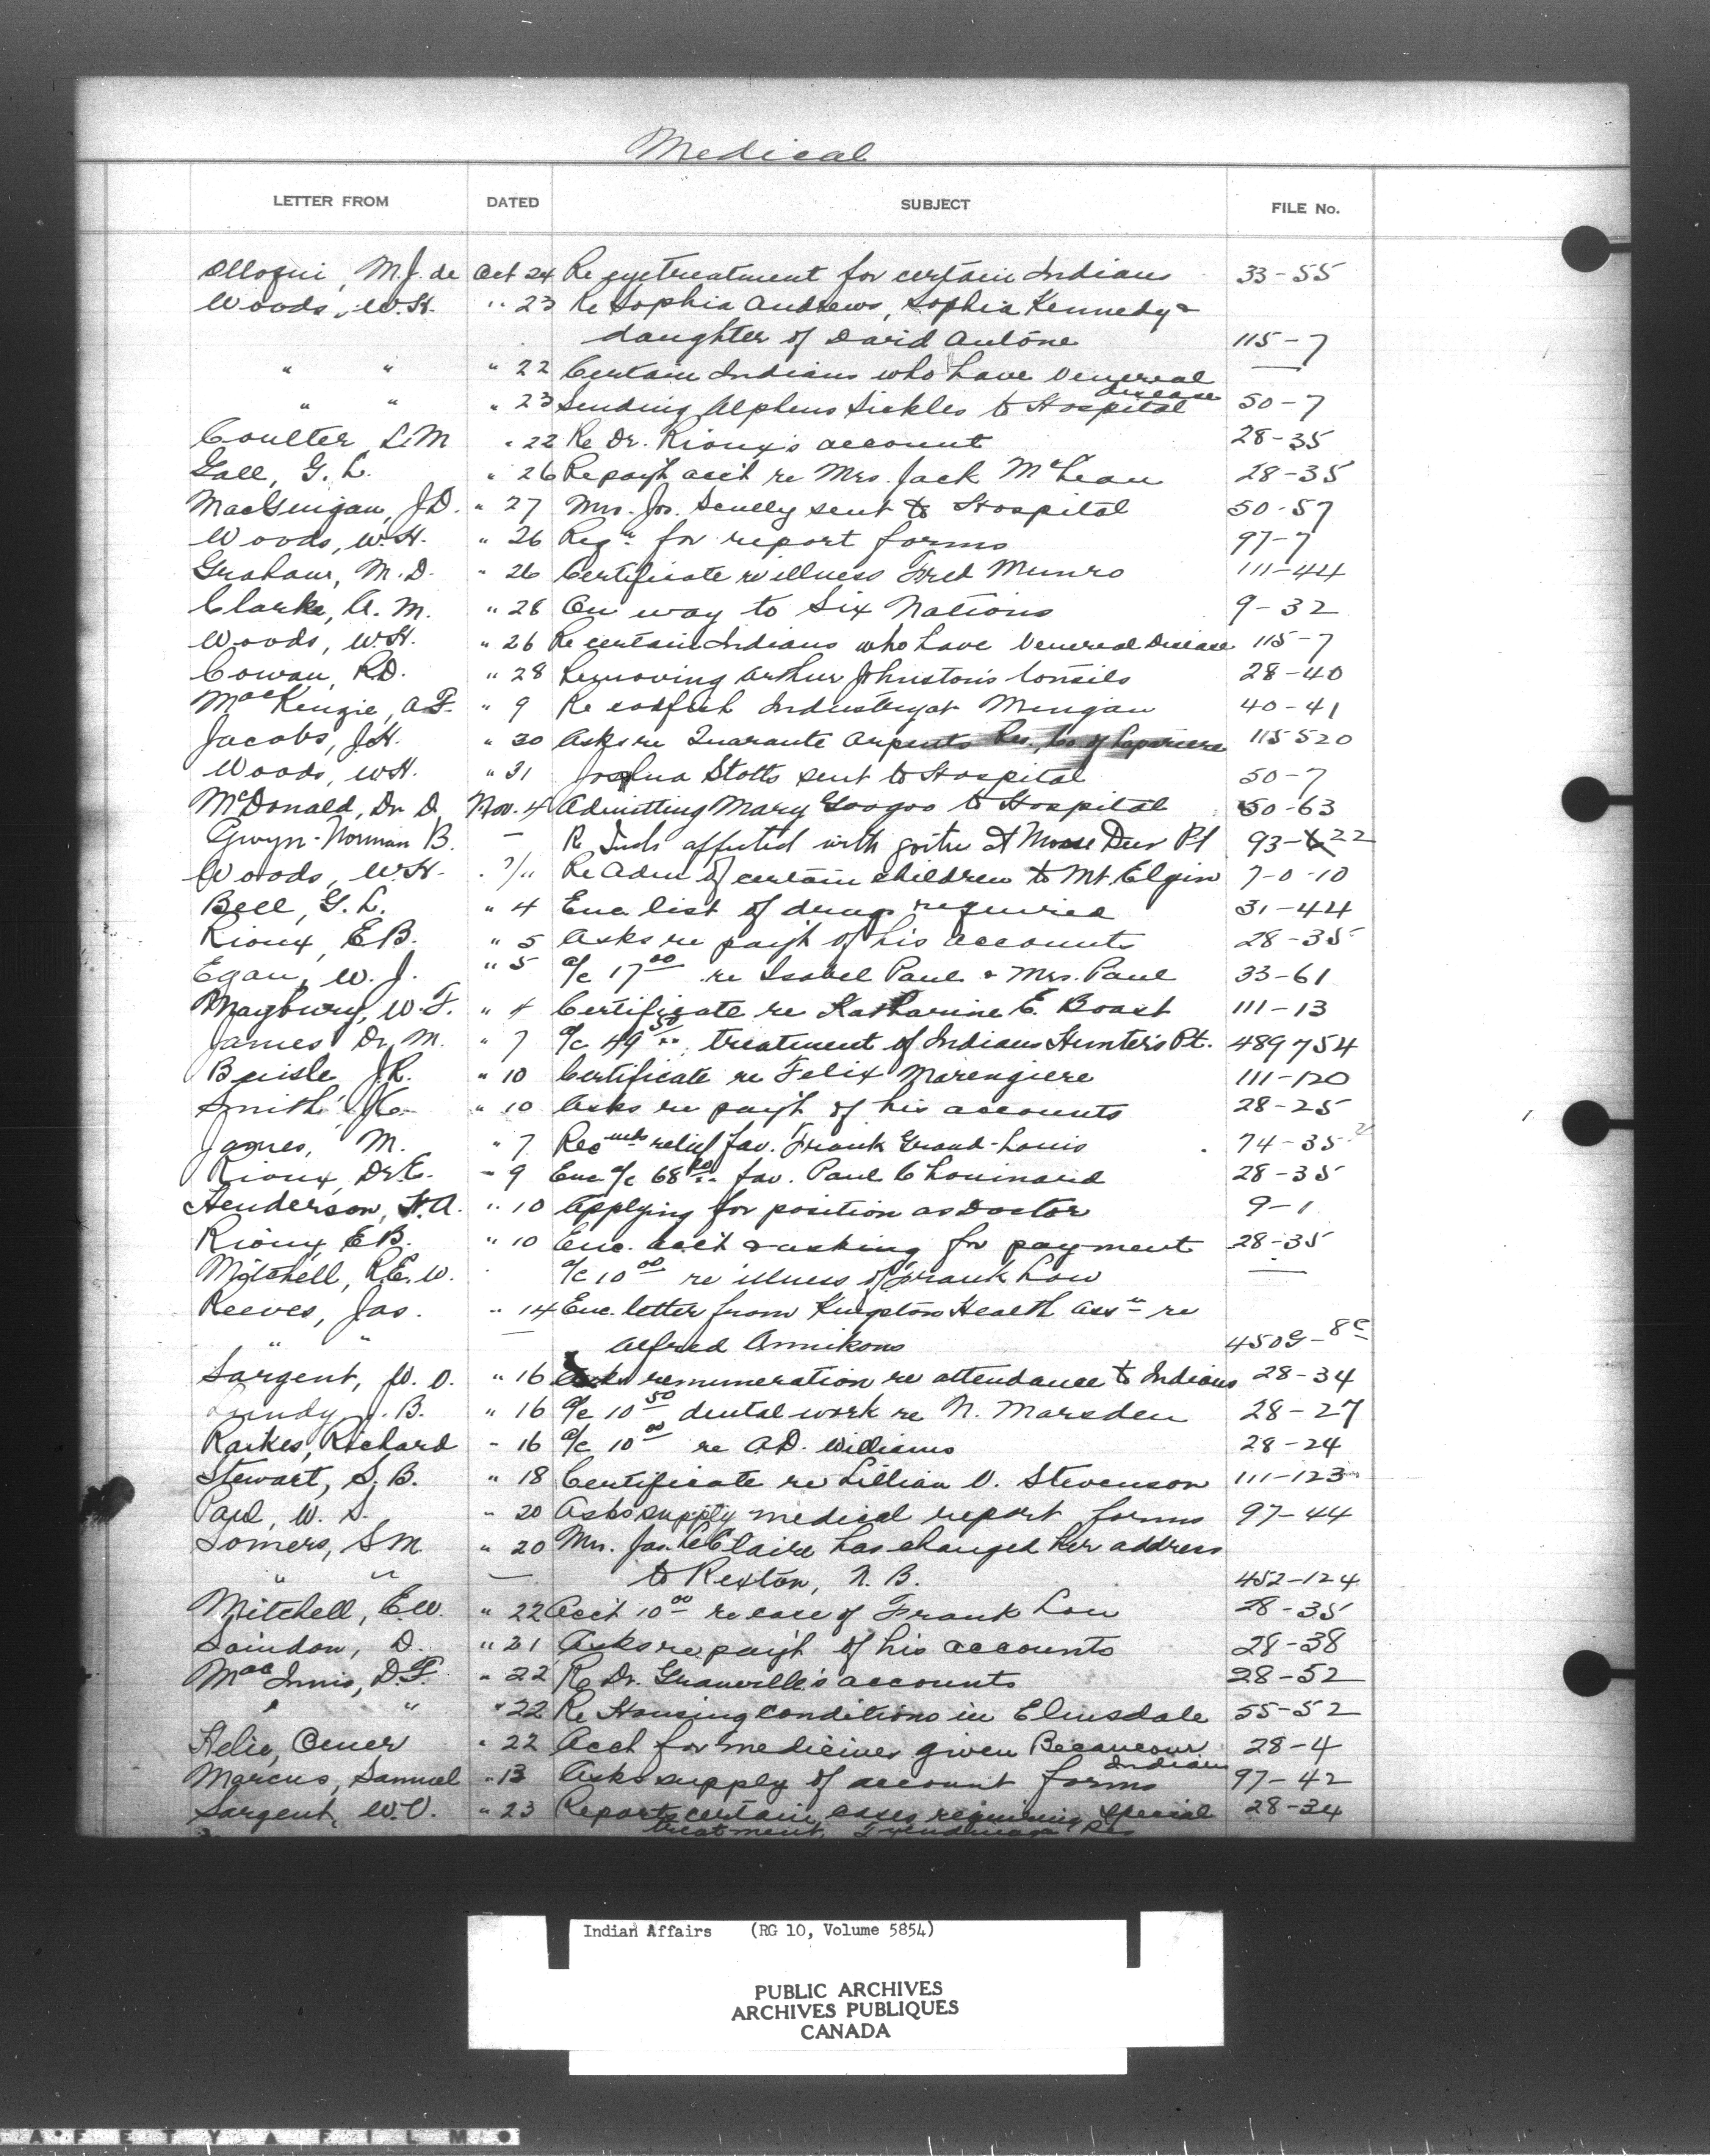 Medical
LETTER FROM DATED SUBJECT FILE No.
Olloqui, M.J. de Oct 24 Re eye treatment for certain Indians 33-55
Woods, W.H. " 23 Re Sophia Andrews, Sophia Kennedy &
daughter of David Antone 115-7
" " " 22 Certain Indians who have Venereal —
disease
" " " 23 Sending Alpheus Sickles to Hospital 50-7
Coulter, L.M " 22 Re Dr. Rioux's account 28-35
Gall, G.L. " 26 Re pay't acc't re Mrs. Jack McLean 28-35
MacGuigan, J.D. " 27 Mrs. Jos. Scully sent to Hospital 50-57
Woods, W.H. " 26 Reqn for report forms 97-7
Graham, M.D. " 26 Certificate re illness Fred Munro 111-44
Clarke, A.M. " 28 On way to Six Nations 9-32
Woods, W.H. " 26 Re certain Indians who have Venereal Disease 115-7
Cowan, R.D. " 28 Removing Arthur Johnston's tonsils 28-40
MacKenzie, A.F. " 9 Re codfish Industry at Mingan 40-41
Jacobs, J.H. " 30 Asks re Quarante Arpents Res., Co. of 115520
Woods, W.H. " 31 Joshua Stotts sent to Hospital 50-7
McDonald, Dr D. Nov. 4 Admitting Mary Googoo to Hospital 50-63
Gwyn-Norman B. — R Inds affected with goitre at Moose Deer Pt 93-22
Woods, W.H. Re Adm of certain children to Mt. Elgin 7-0-10
Bell, G.L. " 4 Enc. list of drugs required 31-44
Rioux, E.B. " 5 Asks re pay't of his accounts 28-35
Egan, W.J. " 5 a/c 17 00 re Isabel Paul & Mrs. Paul 33-61
Maybury, W.F. " 4 Certificate re Katharine E. Boast 111-13
James Dr, M. " 7 a/c 49 50, treatment of Indians Hunter's Pt. 489754
J.R. " 10 Certificate re Felix Marengiere 111-120
Smith, J.C. " 10 Asks re pay't of his accounts 28-25
James, M. " 7 Recmds relief fav. Frank Grand-Louis 74-35
Rioux, Dr. E. " 9 Enc a/c 68 fav. Paul Chouinard 28-35
Henderson, H.A. " 10 Applying for position as Doctor 9-1
Rioux, E.B. " 10 Enc. acc't & asking for payment 28-35
Mitchell, R.E.W. a/c 10 00 re illness of Frank Low —
Reeves, Jas. " 14 Enc. letter from Kingston Health Assn re
" " — Alfred Annikons 450G-8C
Sargent, W.V. " 16 Asks remuneration re attendance to Indians 28-34
Lundy J.B. " 16 a/c 10 50 dental work re N. Marsden 28-27
Raikes, Richard " 16 a/c 10 00 re A.D. Williams 28-24
Stewart, S.B. " 18 Certificate re Lillian V. Stevenson 111-123
Paul, W.S. " 20 Asks supply medical report forms 97-44
Somers, S.M. " 20 Mrs. Jas. LeClaire has changed her address
" " — to Rexton, N.B. 452-124
Mitchell, E.W. " 22 Acc't 10 00 re case of Frank Low 28-35
Saindon, D. " 21 Asks re pay't of his accounts 28-38
MacInnis, D.F. " 22 Re Dr. Granville's accounts 28-52
" " " 22 Re Housing conditions in Elmsdale 55-52
Helie, Omer " 22 Acct for medicines given Becancour 28-4
Indians
Marcus, Samuel " 13 Asks supply of account forms 97-42
Sargent, W.V. " 23 Reports certain cases requiring special 28-34
treatment, Tyendinaga Res
Indian Affairs (RG 10, Volume 5854)
PUBLIC ARCHIVES
ARCHIVES PUBLIQUES
CANADA
SAFETY FILM